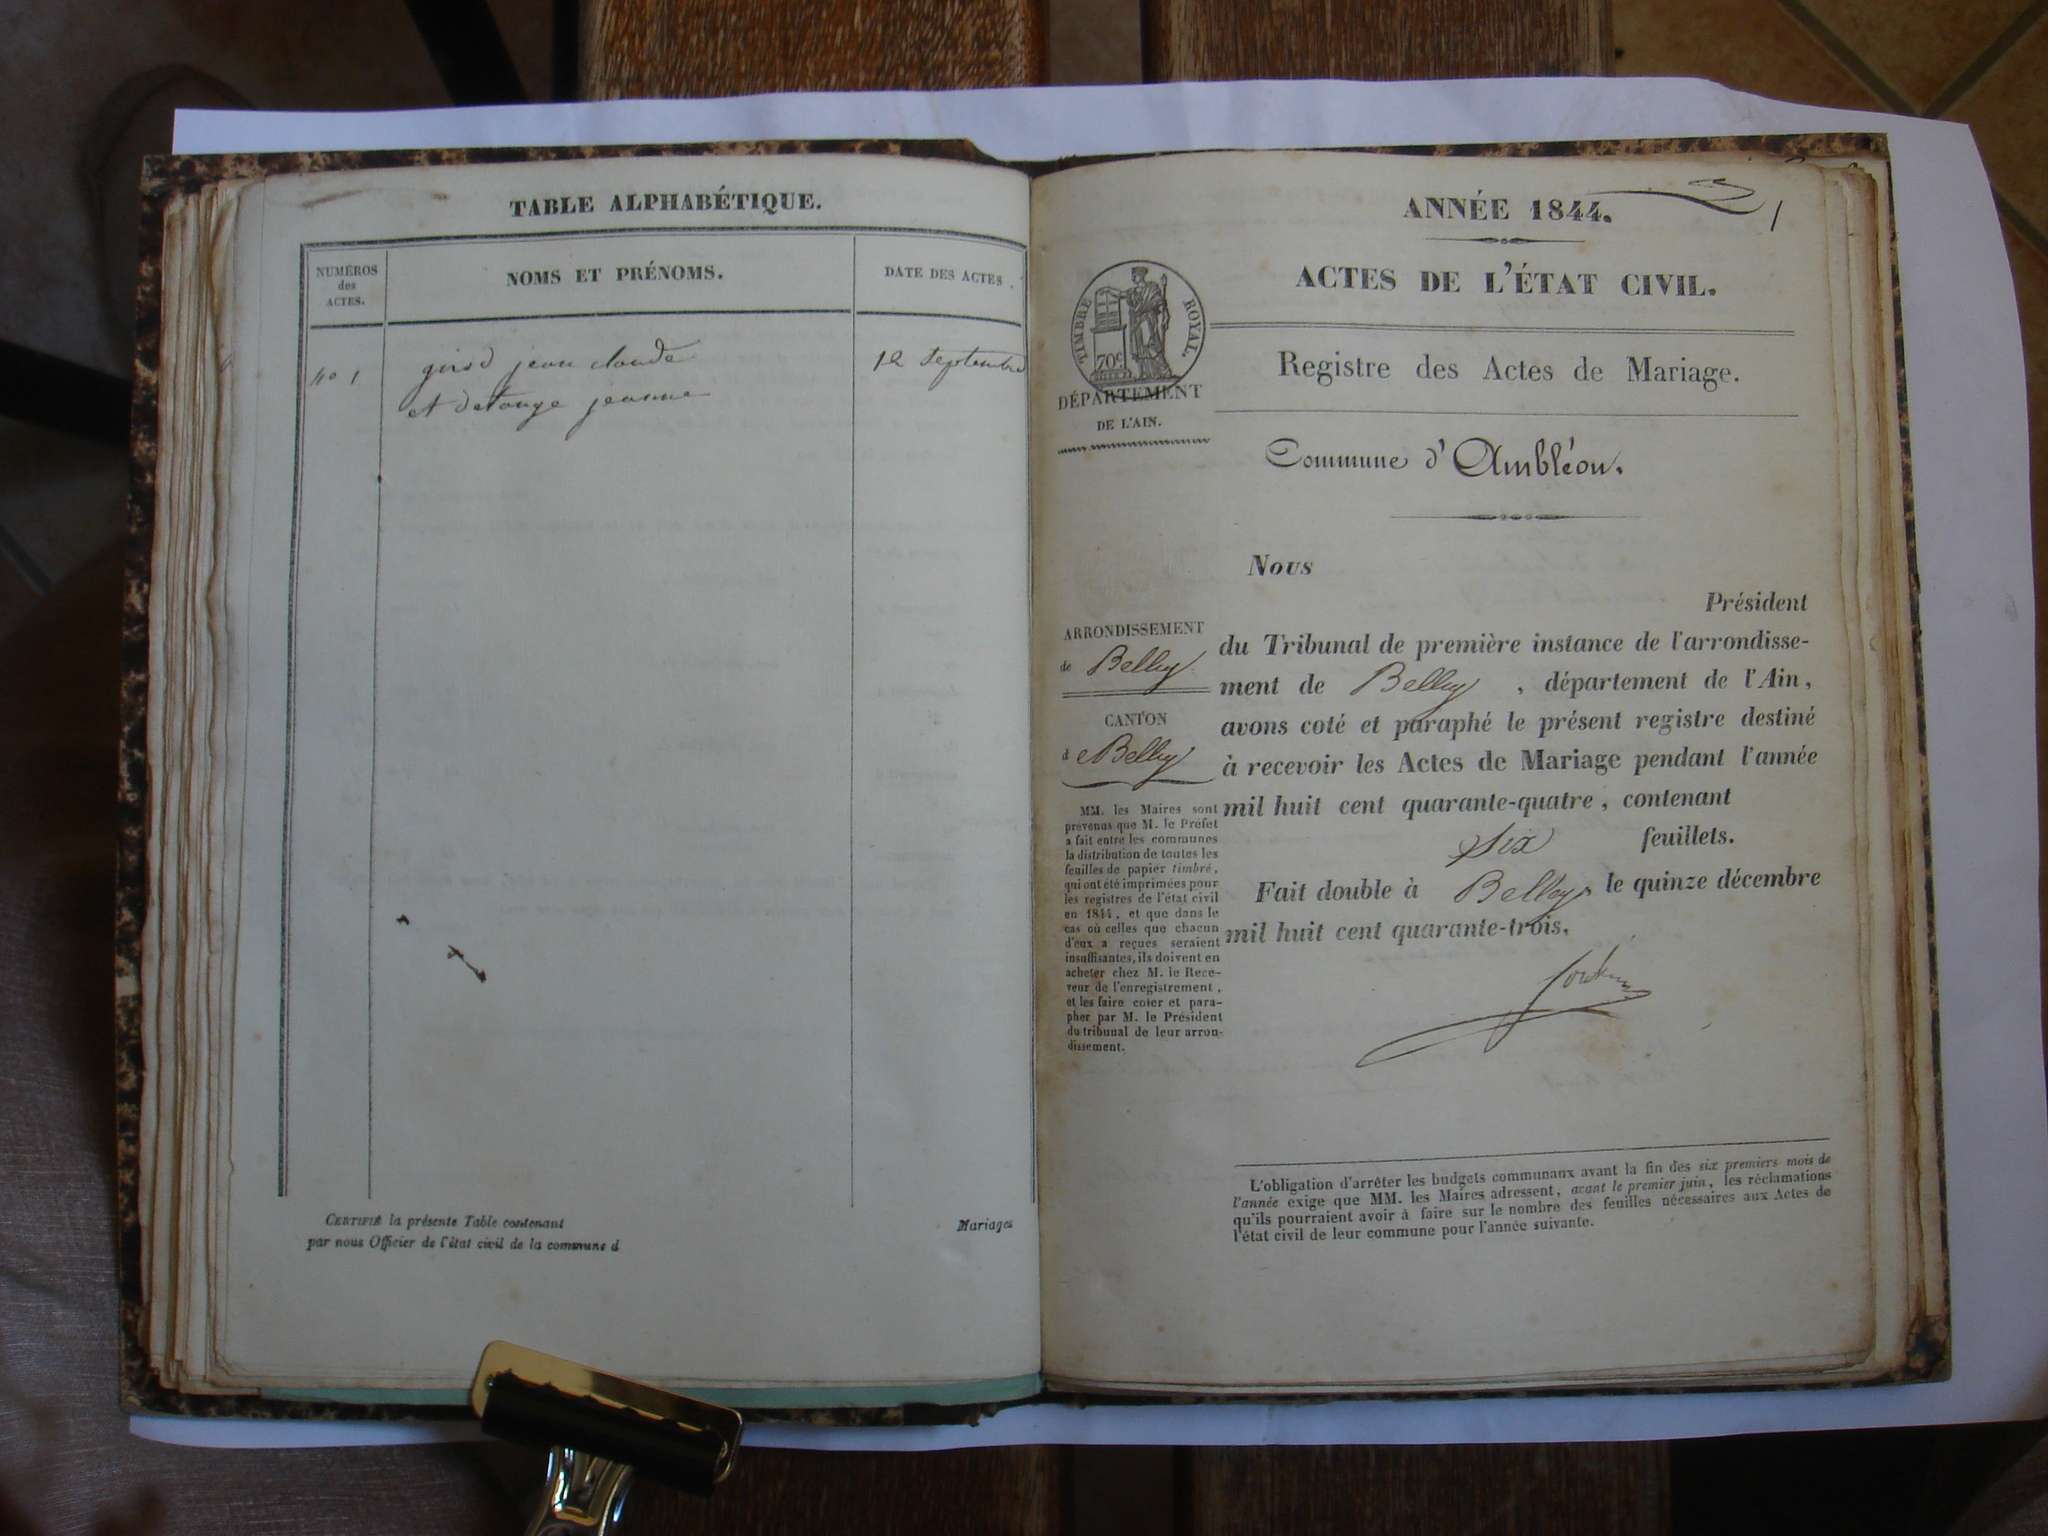 TABLE ALPHABÉTIQUE.
NUMÉROS
des
ACTES.
NOMS ET PRÉNOMS.
DATE DES ACTES.
no 1
jean claude
12 septembre
et jeanne
CERTIFIÉ la présente Table contenant
par nous Officier de l'état civil de la commune d
Mariages
1
ANNÉE 1844.
ACTES DE L'ÉTAT CIVIL.
TIMBRE ROYAL.
70c
DÉPARTEMENT
DE L'AIN.
Registre des Actes de Mariage.
Commune d'Ambléon.
ARRONDISSEMENT
de Belley
CANTON
de Belley
MM. les Maires sont
prévenus que M. le Préfet
a fait entre les communes
la distribution de toutes les
feuilles de papier timbré,
qui ont été imprimées pour
les registres de l'état civil
en 1844, et que dans le
cas où celles que chacun
d'eux a reçues seraient
insuffisantes, ils doivent en
acheter chez M. le Rece-
veur de l'enregistrement,
et les faire coter et para-
pher par M. le Président
du tribunal de leur arron-
dissement.
Nous
Président
du Tribunal de première instance de l'arrondisse-
ment de Belley, département de l'Ain,
avons coté et paraphé le présent registre destiné
à recevoir les Actes de Mariage pendant l'année
mil huit cent quarante-quatre, contenant
six feuillets.
Fait double à Belley, le quinze décembre
mil huit cent quarante-trois.
L'obligation d'arrêter les budgets communaux avant la fin des six premiers mois de
l'année exige que MM. les Maires adressent, avant le premier juin, les réclamations
qu'ils pourraient avoir à faire sur le nombre des feuilles nécessaires aux Actes de
l'état civil de leur commune pour l'année suivante.